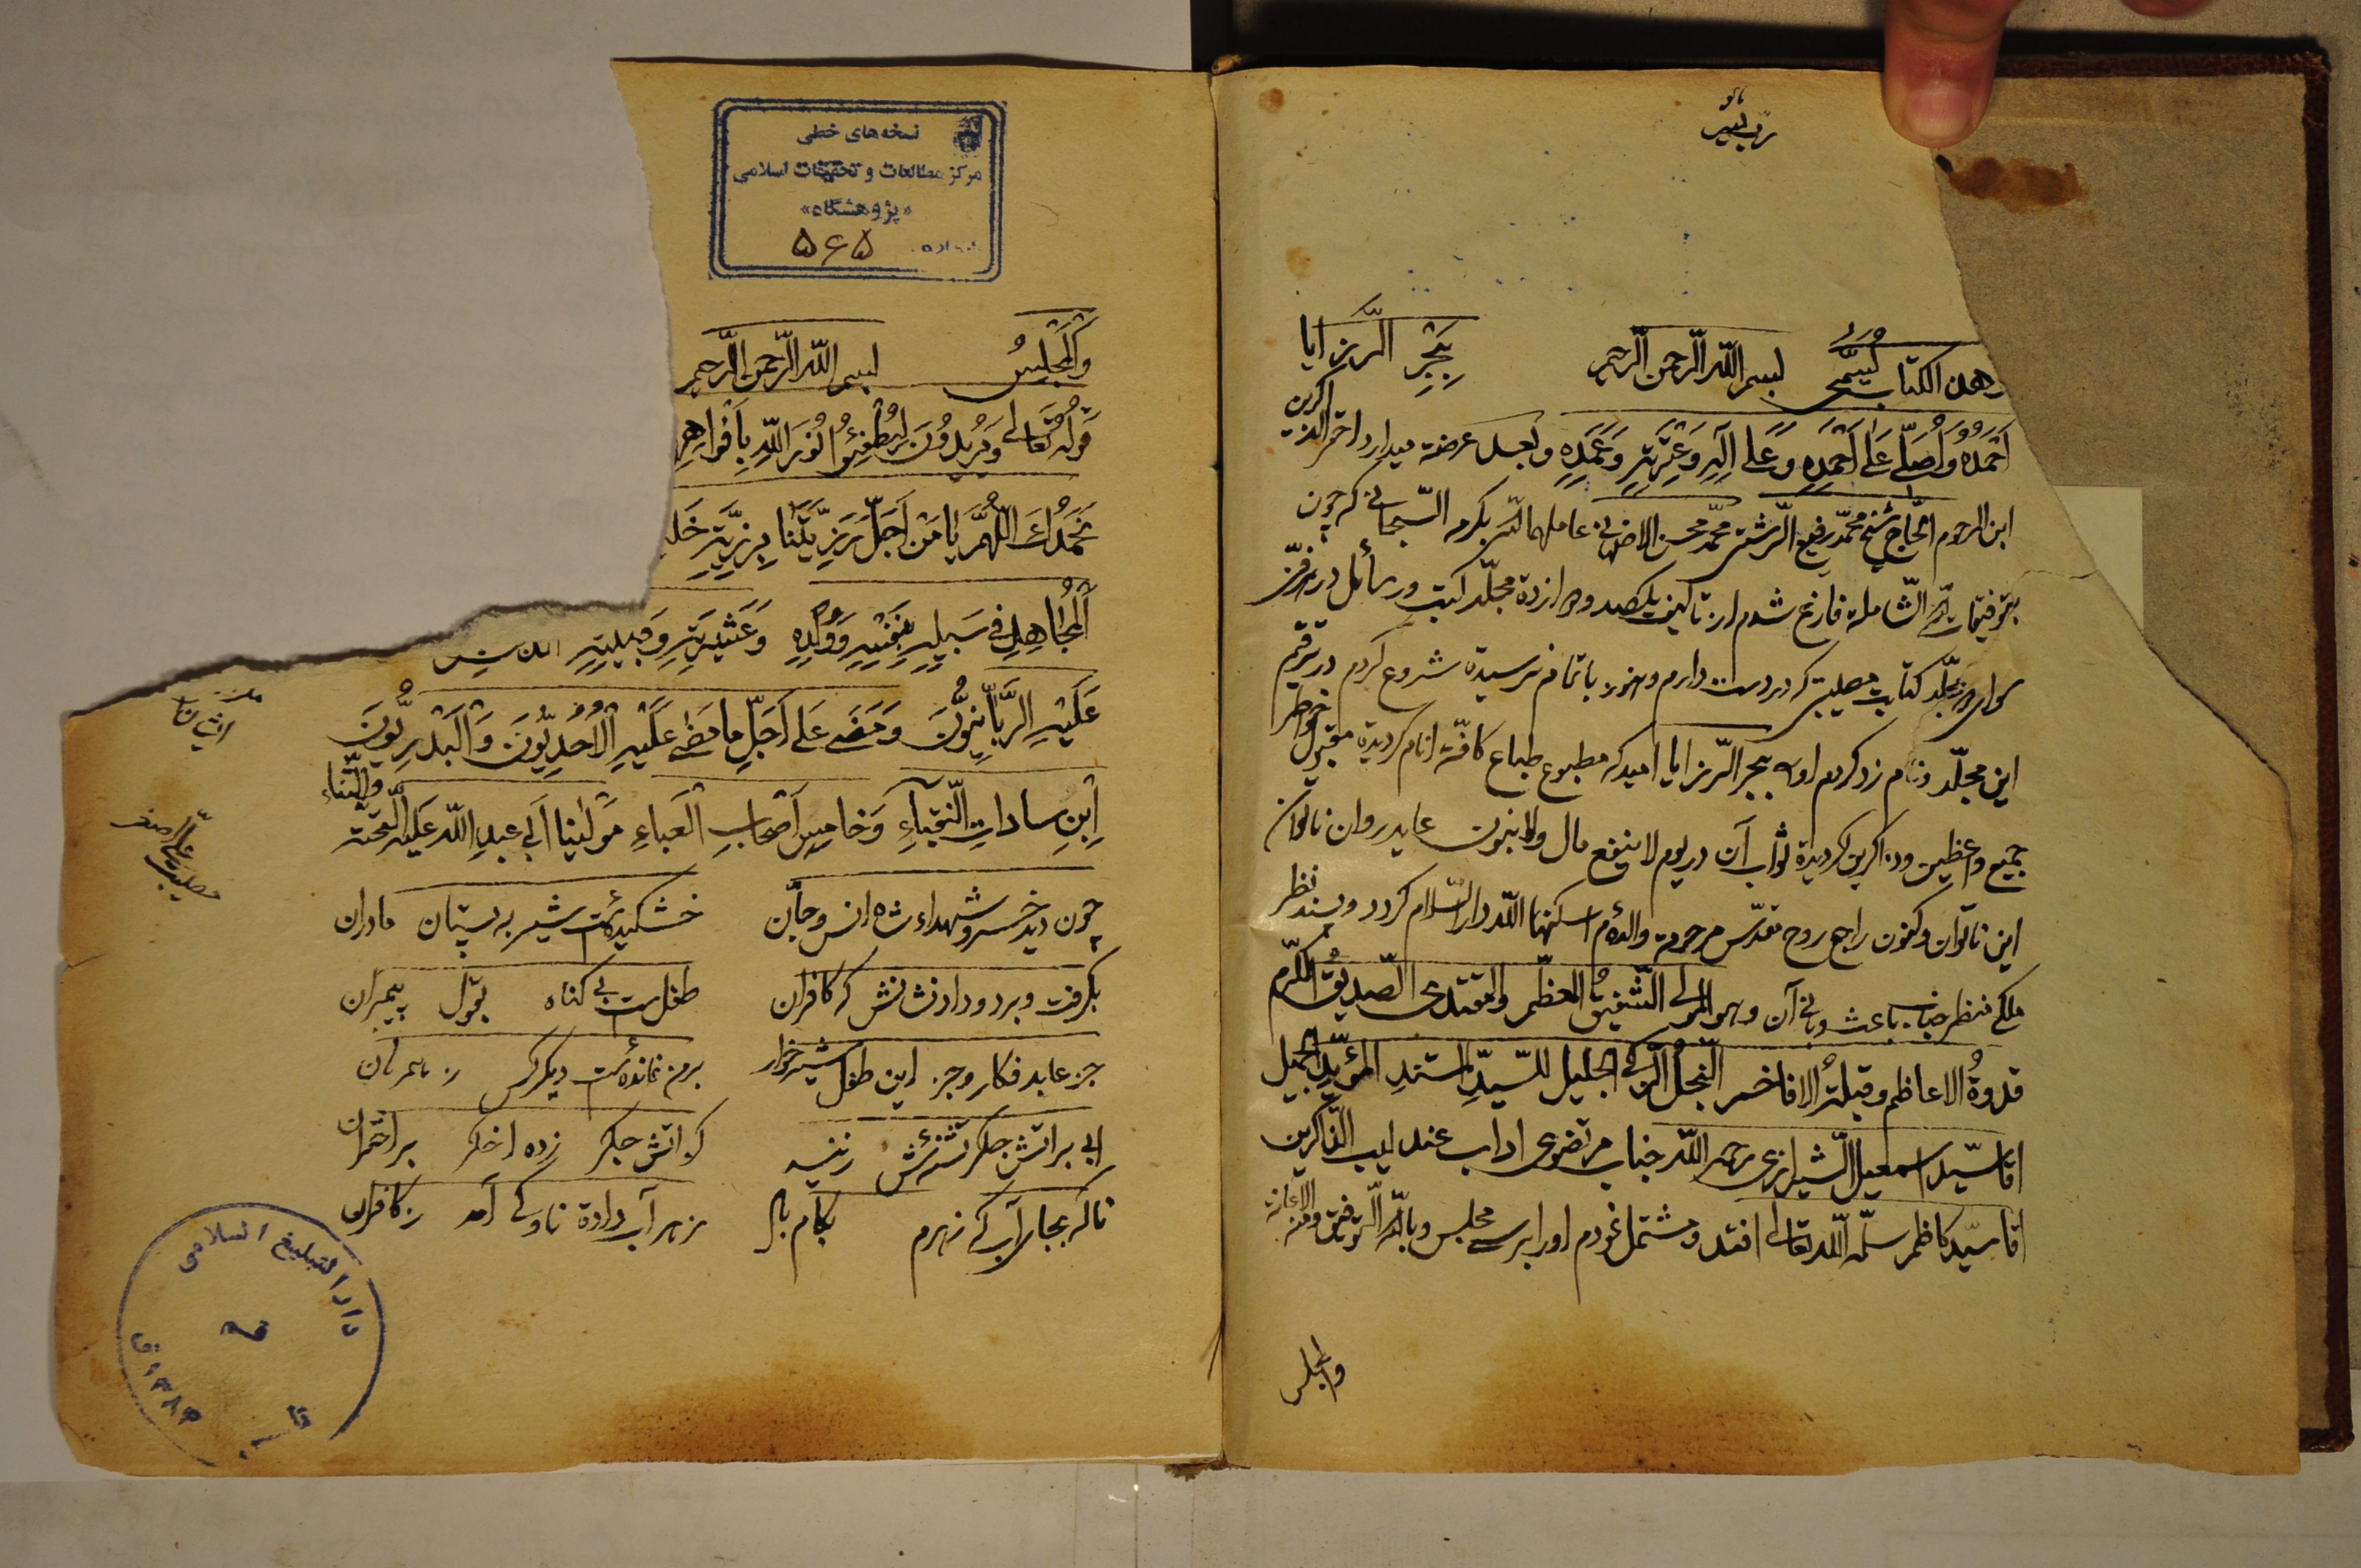 رب یسر
هذا الکتاب یُسَمّی بسم الله الرحمن الرحیم بِبَحرِ الرّزایا
اَحمَدُهُ وَ اُصَلّی عَلی اَحمَدِهِ وَ عَلی آلِهِ وَ عِترَتِهِ وَ بعد عرضه میدارد احقر الذاکرین
ابن المرحوم الحاج شیخ محمد رفیع الرشتی محمد محسن عاملهما الله بکرمه السبحانی که چون
الشامله فارغ شدم از یکصد و دوازده مجلد کتب و رسائل در
مجلد کتاب مصیبت که در دست دارم و هنوز باتمام نرسیده شروع کردم در ترقیم
این مجلد و نام زد کردم او به بحر الرزایا امید که مطبوع طباع کافّه انام گردیده مقبول خواطر
جمیع واعظین و ذاکرین گردیده ثواب آن در یوم لا ینفع مال و لا بنون عاید روان ناتوان
این ناتوان و کنون راجع روح مقدس مرحومه والده‌ام اسکنها الله دار السلام گردد و پسند نظر
ملکی منظر جناب باعث و بانی آن و هو المولی الشفیق المعظم و المقتدی الصدیق المکرم
قدوةُ الاعاظم و قبلةُ الافاخم النجل الزکی الجلیل للسید السند المؤید الجمیل
اقا سید اسمعیل الشیرازی رحمه الله جناب مرتضوی اداب عندلیب الذاکرین
اقا سید کاظم سلمه الله تعالی افتد و مشتمل نمودم او را بر سی مجلس و بالله التوفیق و منه الاعانة
والمجلس
نسخه‌های خطی
مرکز مطالعات و تحقیقات اسلامی
«پژوهشگاه»
شماره ۵۶۵
وَالمَجلِسُ بسم الله الرحمن الرحیم
قَولُهُ تَعالی وَ یُریدُونَ لِیُطفِئُوا نُورَ اللهِ بِاَفواهِهِم
نَحمَدُکَ اللّهُمَّ یا مَن اَجَلَّ رَزِیَّتَنا بِرَزِیَّةِ
اَلمُجاهِدِ فی سَبیلِهِ بِنَفسِهِ وَ وُلدِهِ وَ عَشیرَتِهِ وَ قَبیلَتِهِ
عَلَیهِ الرَّبّانِیُّونَ وَ مَضی عَلی اَجَلِّ ما مَضی عَلَیهِ الاُحُدِیُّونَ وَ البَدرِیُّونَ
اِبنِ ساداتِ النُّقَباءِ وَ خامِسِ اَصحابِ العَباءِ مَولینا اَبی عبدِ الله عَلَیهِ التَّحیَّة والثَّناء
چون دید خسرو شهداء شاه انس و جان خشکیده است شیر به پستان مادران
بگرفت و برد و داد نشانش که کافران طفل است بی گناه بقول پیمبران
جز عابد فکار و جز این طفل شیر خوار بر من نمانده است دیگر کس
ابی بر اتش جگر تشنه‌اش زنید کز اتش جگر زده اخگر بر اختران
ناگه بجای آب که بکام زهر آب داده ناوکی آمد ز کافران
مصیبت علی اصغر
دار التبلیغ اسلامی
قم
۱۳۸۴ ق